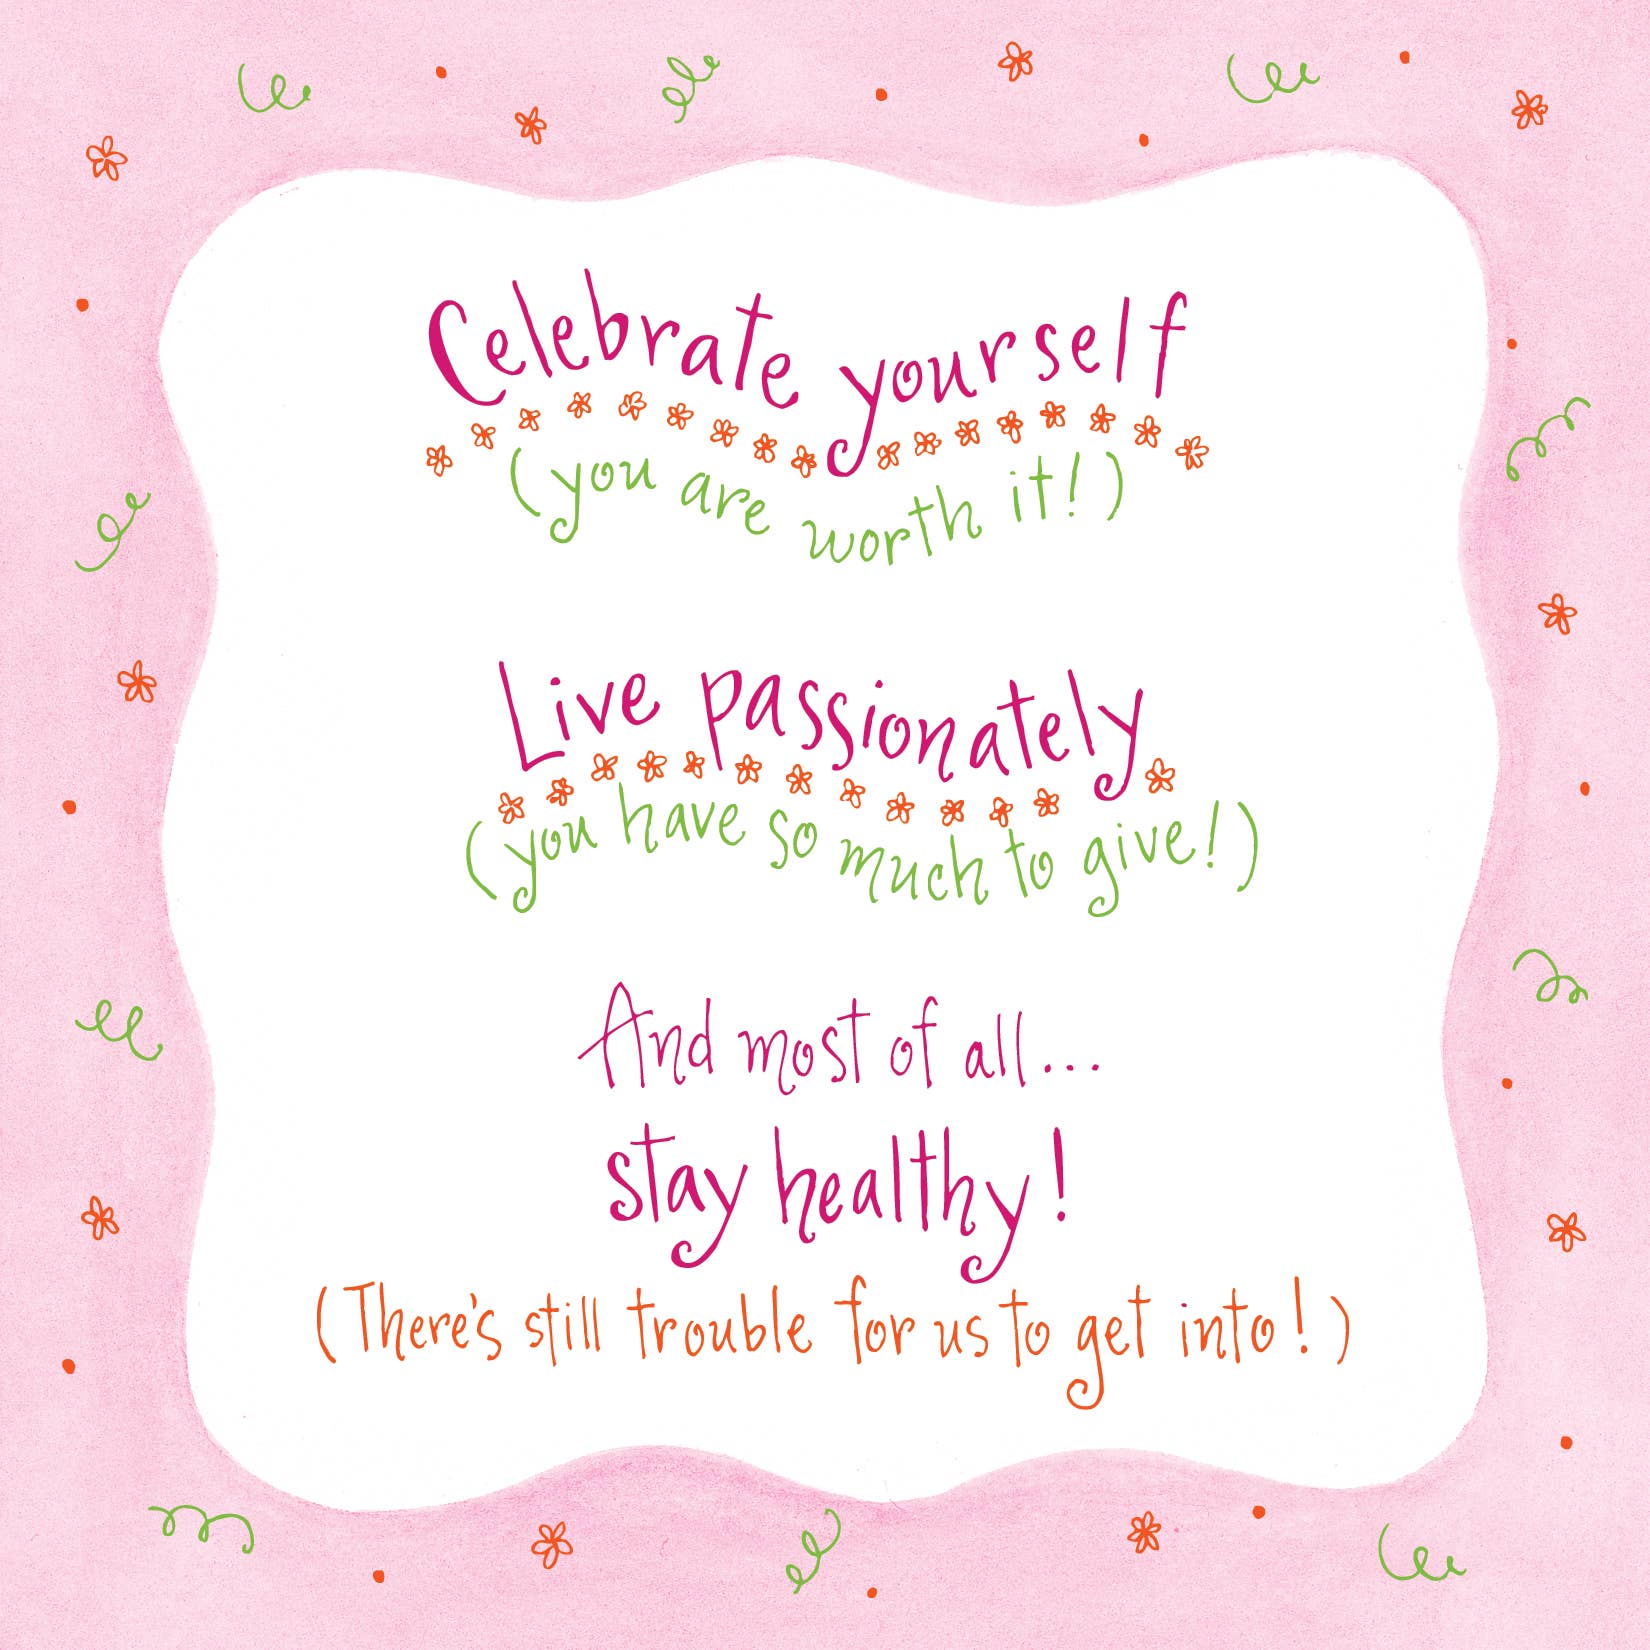 Celebrate yourself
(you are worth it!)
Live passionately
(you have so much to give!)
And most of all...
stay healthy!
(There's still trouble for us to get into!)